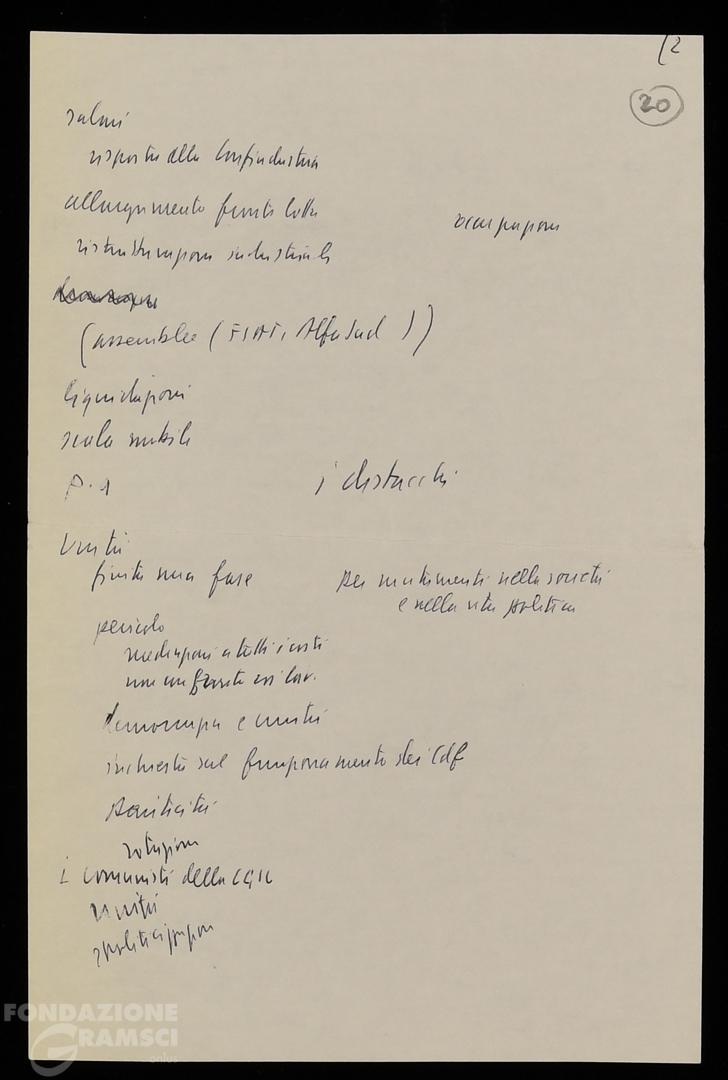 (2
20
salari
risposta alla Confindustria
allargamento fronte lotta
occupazione
ristrutturazione industriale
(assemblee (FIAT, AlfaSud))
liquidazioni
scala mobile
P.
i distacchi
Unità
finita una fase
per mutamenti nella società
e nella vita politica
pericolo
mediazioni a tutti i costi
non confronto coi lav.
democrazia e unità
inchiesta sul funzionamento dei Cdf
rotazione
i comunisti della CGIL
unità
spoliticizzazione
FONDAZIONE
GRAMSCI
onlus